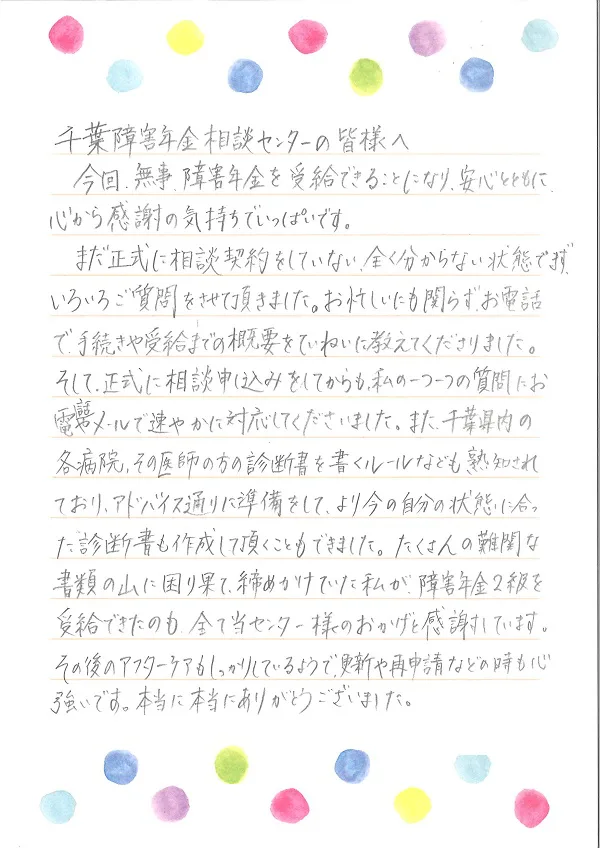 千葉障害年金相談センターの皆様へ
今回、無事、障害年金を受給できることになり、安心とともに、
心から感謝の気持ちでいっぱいです。
まだ正式に相談契約をしていない、全く分からない状態でまず、
いろいろご質問をさせて頂きました。お忙しいにも関らず、お電話
で、手続きや受給までの概要をていねいに教えてくださりました。
そして、正式に相談申し込みをしてからも、私の一つ一つの質問にお
電話、メールで速やかに対応してくださいました。また、千葉県内の
各病院、その医師の方の診断書を書くルールなども熟知され
ており、アドバイス通りに準備をして、より今の自分の状態に合っ
た診断書も作成して頂くこともできました。たくさんの難関な
書類の山に困り果て、締めかけていた私が、障害年金2級を
受給できたのも、全て当センター様のおかげと感謝しています。
その後のアフターケアもしっかりしているようで、更新や再申請などの時も心
強いです。本当に本当にありがとうございました。